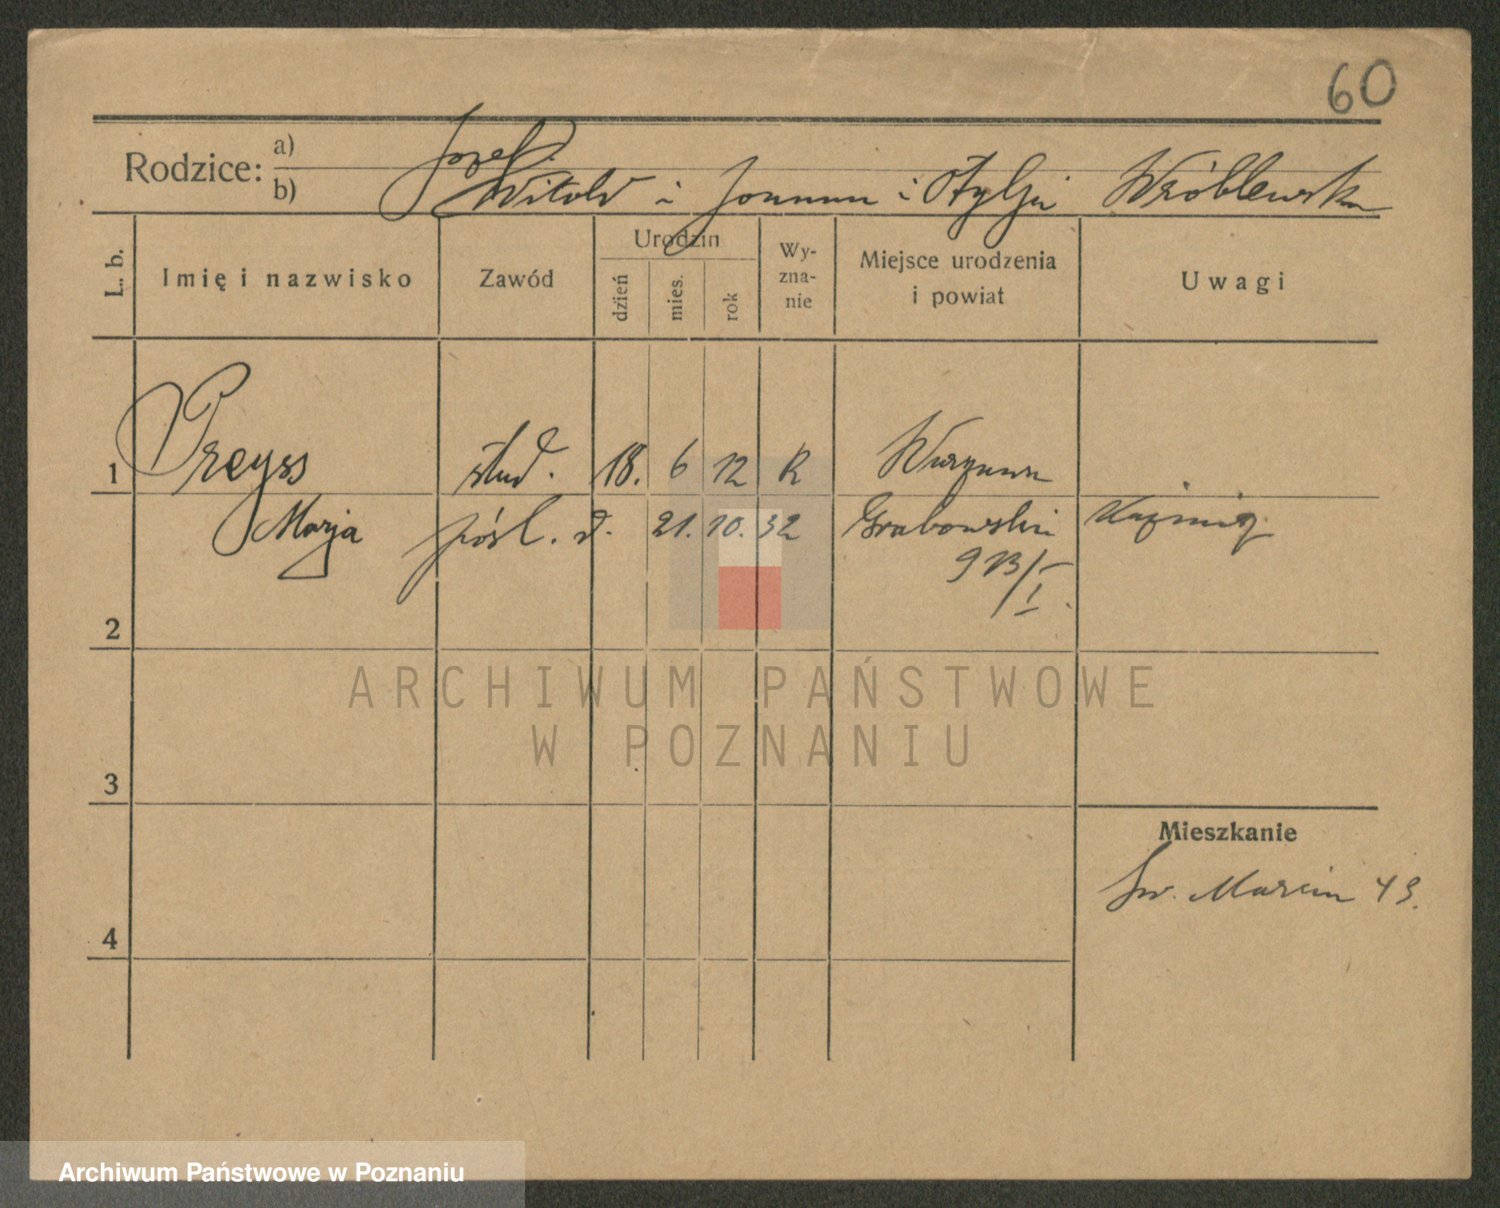 60
Rodzice: a) Józef
b) Witold i Joanna i Otylja Wróblewska
L. b. Imię i nazwisko Zawód Urodzin dzień mies. rok Wyznanie Miejsce urodzenia i powiat Uwagi
1 Preyss stud. 18. 6 12 R Warszawa
Marja pośl. d. 21. 10. 32 Grabowski Kaźmierz
9 B/I.
2
3
4
Mieszkanie
Św. Marcin 43.
ARCHIWUM PAŃSTWOWE
W POZNANIU
Archiwum Państwowe w Poznaniu